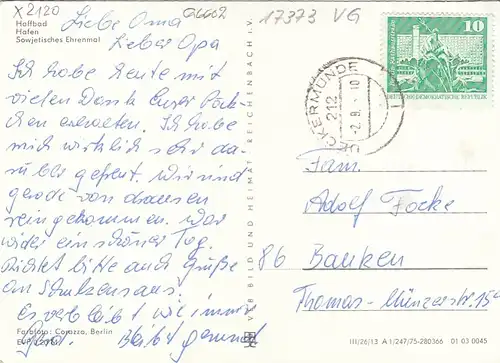 X 2120
G6602
17373 VG
Haffbad
Hafen
Sowjetisches Ehrenmal
Liebe Oma
Lieber Opa
Ich habe heute mit
vielen Dank Euer Päck-
chen erhalten. Ich habe
mich wirklich sehr da-
rüber gefreut. Wir sind
gerade von draussen
reingekommen. War
wider ein schöner Tag.
Richtet bitte auch Grüße
an
Es verbleibt wie immer
Bleibt gesund
Farbfoto: Corazza, Berlin
EVP
VEB BILD UND HEIMAT REICHENBACH I. V.
UECKERMÜNDE
212
-2.9. - 10
10
Fam.
Adolf Focke
86 Bautzen
Thomas-Münzerstr. 15
III/26/13 A 1/247/75-280366 01 03 0045